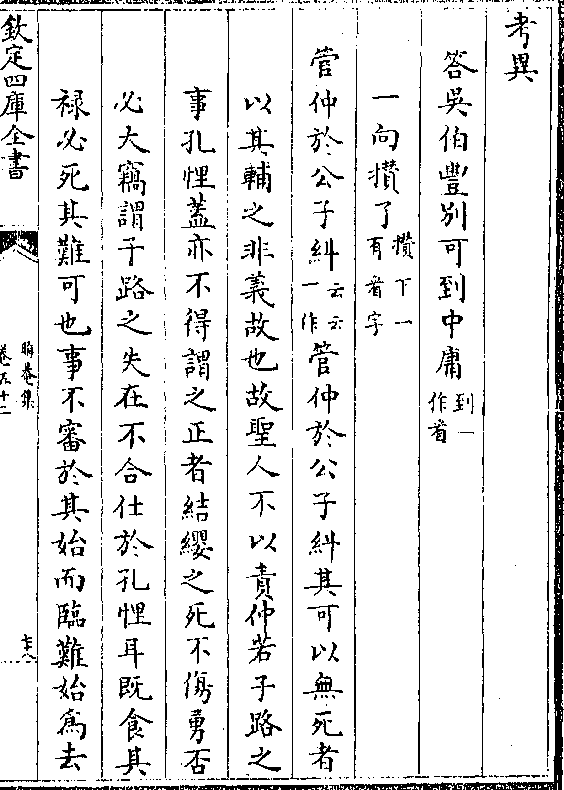 考異
答吳伯豐別可到中庸 到一作看
一向攢了 攢下一有着字
管仲於公子糾 云云一作管仲於公子糾其可以無死者
以其輔之非義故也故聖人不以責仲若子路之
事孔悝蓋亦不得謂之正者結纓之死不傷勇否
必大竊謂子路之失在不合仕於孔悝耳既食其
禄必死其難可也事不審於其始而臨難始為去
欽定四庫全書
晦菴集
卷五十二
七十八